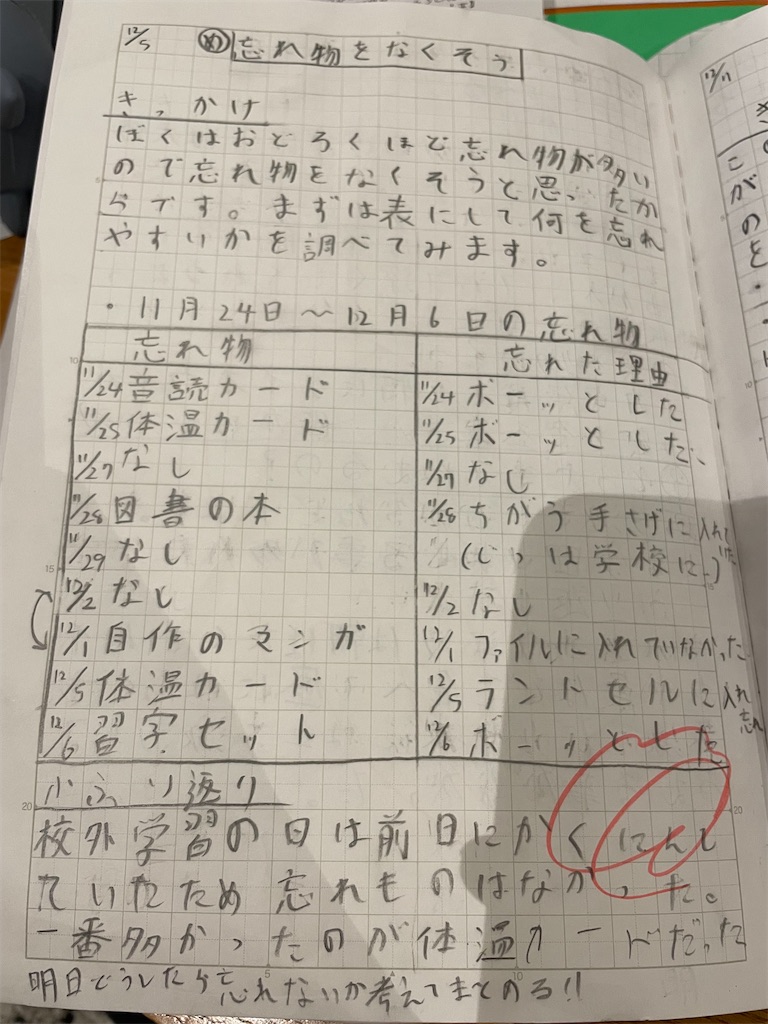 12/5 め 忘れ物をなくそう
きっかけ
ぼくはおどろくほど忘れ物が多い
ので忘れ物をなくそうと思ったか
らです。まずは表にして何を忘れ
やすいかを調べてみます。
・11月24日〜12月6日の忘れ物
忘れ物 忘れた理由
11/24音読カード 11/24ボーッとした
11/25体温カード 11/25ボーッとした
11/27なし 11/27なし
11/28図書の本 11/28ちがう手さげに入れていた
11/29なし (じつは学校に)
12/2なし 12/2なし
12/1自作のマンガ 12/1ファイルに入れていなかった
12/5体温カード 12/5ランドセルに入れ忘れ
12/6習字セット 12/6ボーッとした
小ふり返り
校外学習の日は前日にかくにんし
ていたため忘れものはなかった。
一番多かったのが体温カードだった
明日どうしたら忘れないか考えてまとめる!!
12/11
こ
が
の
と